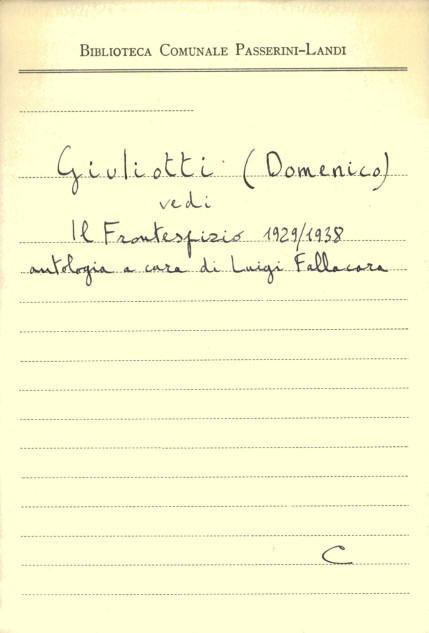 BIBLIOTECA COMUNALE PASSERINI-LANDI
Giuliotti (Domenico)
vedi
Il Frontespizio 1929/1938
antologia a cura di Luigi Fallacara
C